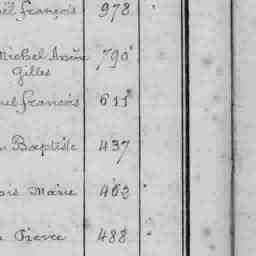 ël françois 978
Michel Anne 790
Gilles
uel françois 611
n Baptiste 437
ois Marie 462
n Pierre 488